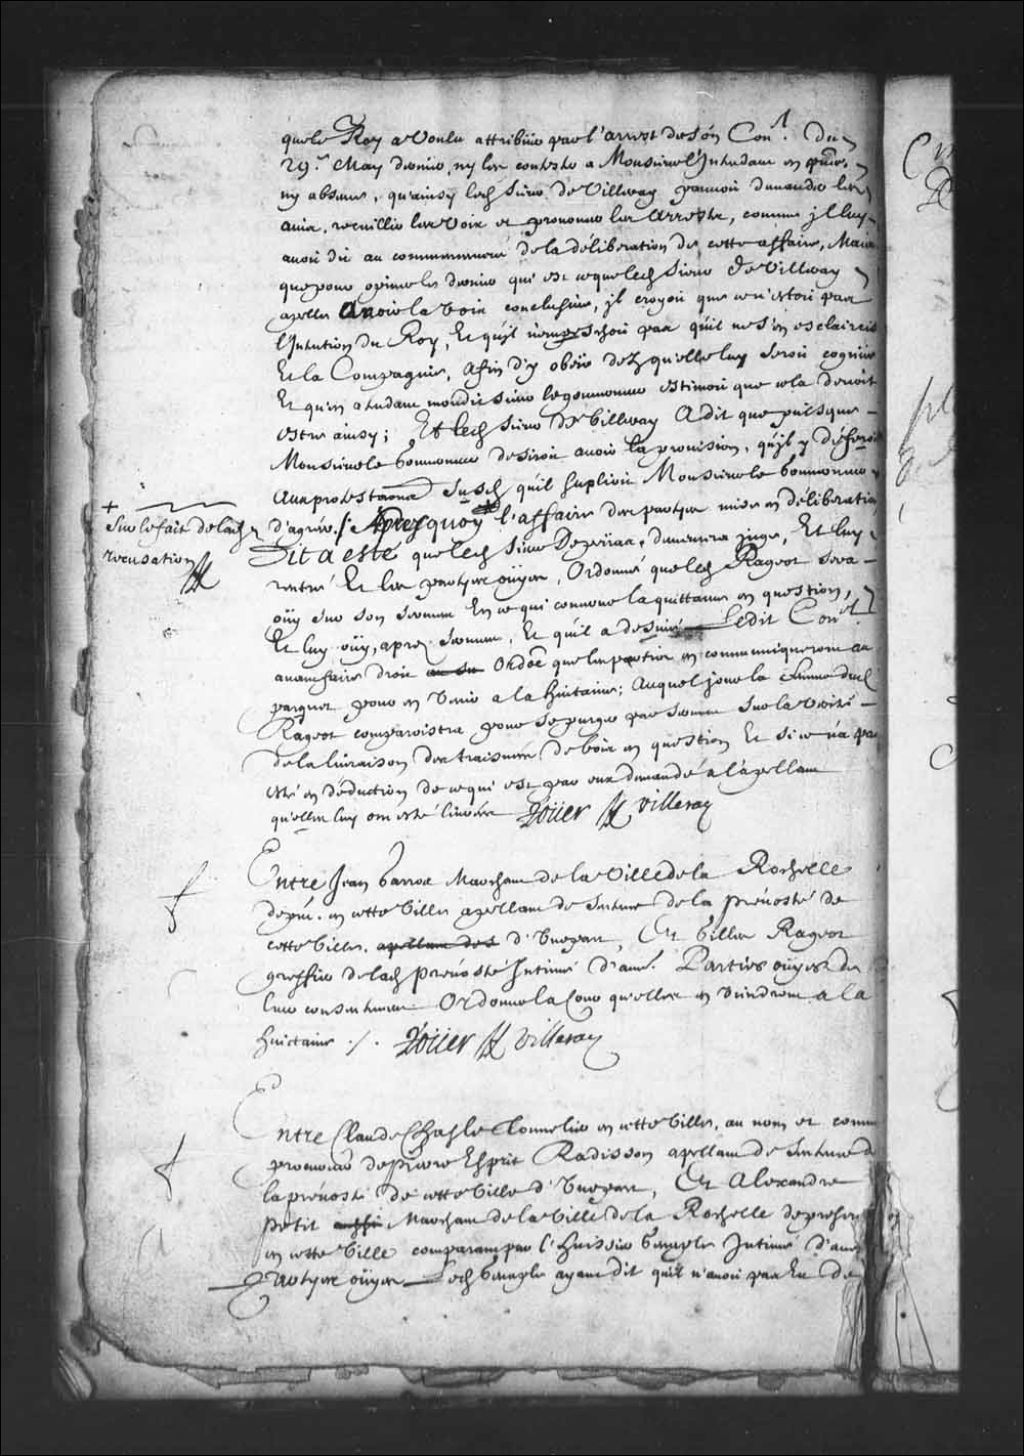 que le Roy a Voulu attribüer par l'arrest de son Con.el Du
29.e May dernier, ny les conteste a Monsieur l'Intendant en pñce,
ny absence, qu'ainsy led. Sieur De Villeray pouuoit demander les
auis, recueillir les Voix et prononcer les Arrests, comme jl luy
auoit dit au commencement de la déliberation de cette affaire, Mais
que pour opiner le dernier qui est ce que led. Sieur De Villeray
apelle Auoir la Voix conclusiue, jl croyoit que ce n'estoit pas
l'Intention du Roy, Et qu'jl n'empeschoit pas qu'il ne s'en esclaircit
Et la Compagnie, Afin d'y obeïr dez qu'elle luy seroit cognüe
Et qu'en attendant mondit sieur le gouuerneur estimoit que cela deuoit
estre ainsy; Et led. Sieur De Villeray A dit que puisque
Monsieur le Gouuerneur desiroit auoir la prouision, qu'jl y déferoit
Aux protestaõns Susd. qu'il suplioit Monsieur le Gouuerneur
d'agréer ./. Apres quoy l'affaire des partyes mise en déliberation
+
Sur le fait de lad.
recusation
Dit a esté que led. Sieur Depeiras, demeurera juge, Et luy
rentré Et les partyes oüyes, Ordonné que led. Rageot sera
oüy sur son serment En ce qui concerne la quittance en question,
Et luy oüy, apres serment, Et qu'il a desnié Ledit Con.el
auant faire droit Ordoñe que les parties en communiqueront au
parquet pour en Venir a la huitaine; Auquel jour la femme dud.
Rageot comparoistra pour se purger par serment Sur la Verité
de la liuraison des traisnées de bois en question Et si ce n'a pas
esté en déduction de ce qui est par eux demandé a l'apellant
qu'elles luy ont esté liurées Roüer Villeray
Entre Jean Garros Marchant de la Ville de la Rochelle
de pñt. en cette Ville apellant de Sentence de la preuosté de
cette Ville. apellant des d'Vne part, Et Gilles Rageot
greffier de lad. preuosté Intimé d'au.e Parties oüyes De
leur consentement Ordonne la Cour qu'elles en viendront a la
huictaine ./. Roüer Villeray
Entre Claude Chasle Tonnelier en cette Ville, au nom et comme
procureur de pierre Esprit Radisson apellant de Sentence de
la preuosté de cette Ville d'Vne part, Et Alexandre
petit aussi Marchant de la Ville de la Rochelle de present
en cette Ville comparant par l'huissier Genaple Intimé d'autre
Partyes oüyes Led. Genaple ayant dit qu'il n'auoit pas Eu De